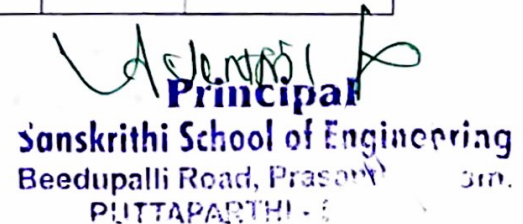 Principal
Sanskrithi School of Engineering
Beedupalli Road,
PUTTAPARTHI -